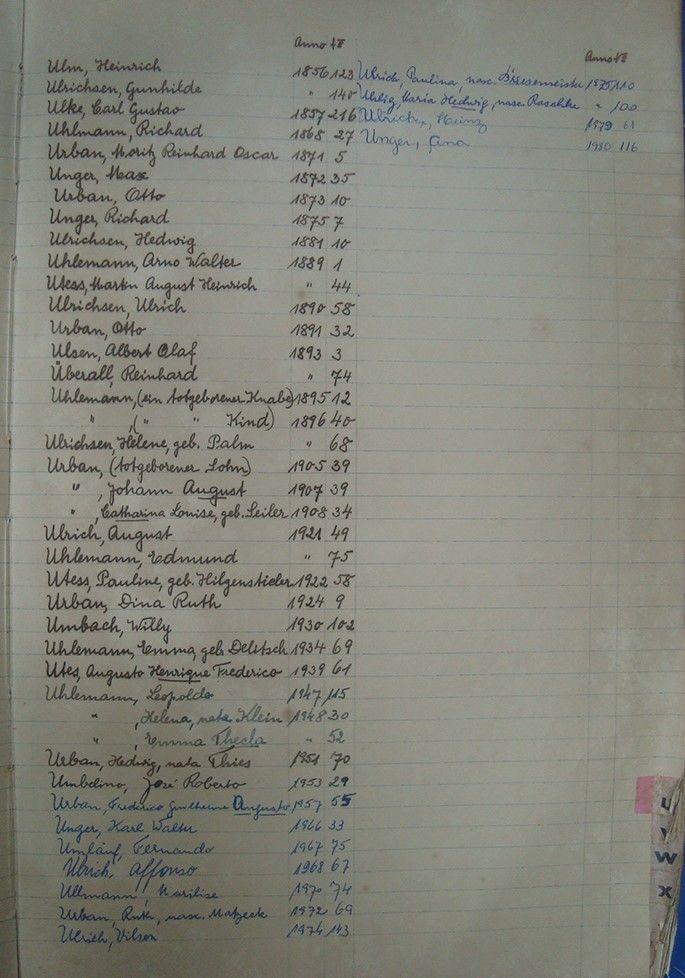 Anno №
Ulm, Heinrich 1856 123
Ulrichsen, Gunhilde " 140
Ulke, Carl Gustav 1857 216
Uhlmann, Richard 1868 27
Urban, Moritz Reinhard Oscar 1871 5
Unger, Max 1872 35
Urban, Otto 1873 10
Unger, Richard 1875 7
Ulrichsen, Hedwig 1881 10
Uhlemann, Arno Walter 1889 1
Utess, Martin August Heinrich " 44
Ulrichsen, Ulrich 1890 58
Urban, Otto 1891 32
Ulsen, Albert Olaf 1893 3
Überall, Reinhard " 74
Uhlemann, (ein totgeborener Knabe) 1895 12
" , ( " " Kind) 1896 40
Ulrichsen, Helene, geb. Palm " 68
Urban, (totgeborener Sohn) 1905 39
" , Johann August 1907 39
" , Catharina Louise, geb. Seiler 1908 34
Ulrich, August 1921 49
Uhlemann, Edmund " 75
Utess, Pauline, geb. Hilgenstieler 1922 58
Urban, Dina Ruth 1924 9
Umbach, Willy 1930 102
Uhlemann, Emma, geb. Delitsch 1934 69
Utes, Augusto Henrique Frederico 1939 61
Uhlemann, Leopoldo 1947 115
" , Helena, nata Klein 1948 30
" , Emma Thecla " 52
Urban, Hedwig, nata Thies 1951 70
Umbelino, José Roberto 1953 29
Urban, Frederico Guilherme Augusto 1957 55
Unger, Karl Walter 1966 33
Umlauf, Fernando 1967 75
Ulrich, Affonso 1968 67
Ullmann, Marilise 1970 74
Urban, Ruth, nasc. Matzeck 1972 69
Ulrich, Vilson 1974 143
Anno №
Ulrich, Paulina, nasc. 1975 110
Uhlig, Maria Hedwig, nasc. Raschke " 100
Ulrich, Heinz 1979 61
Unger, 1980 116
U
V
W
X